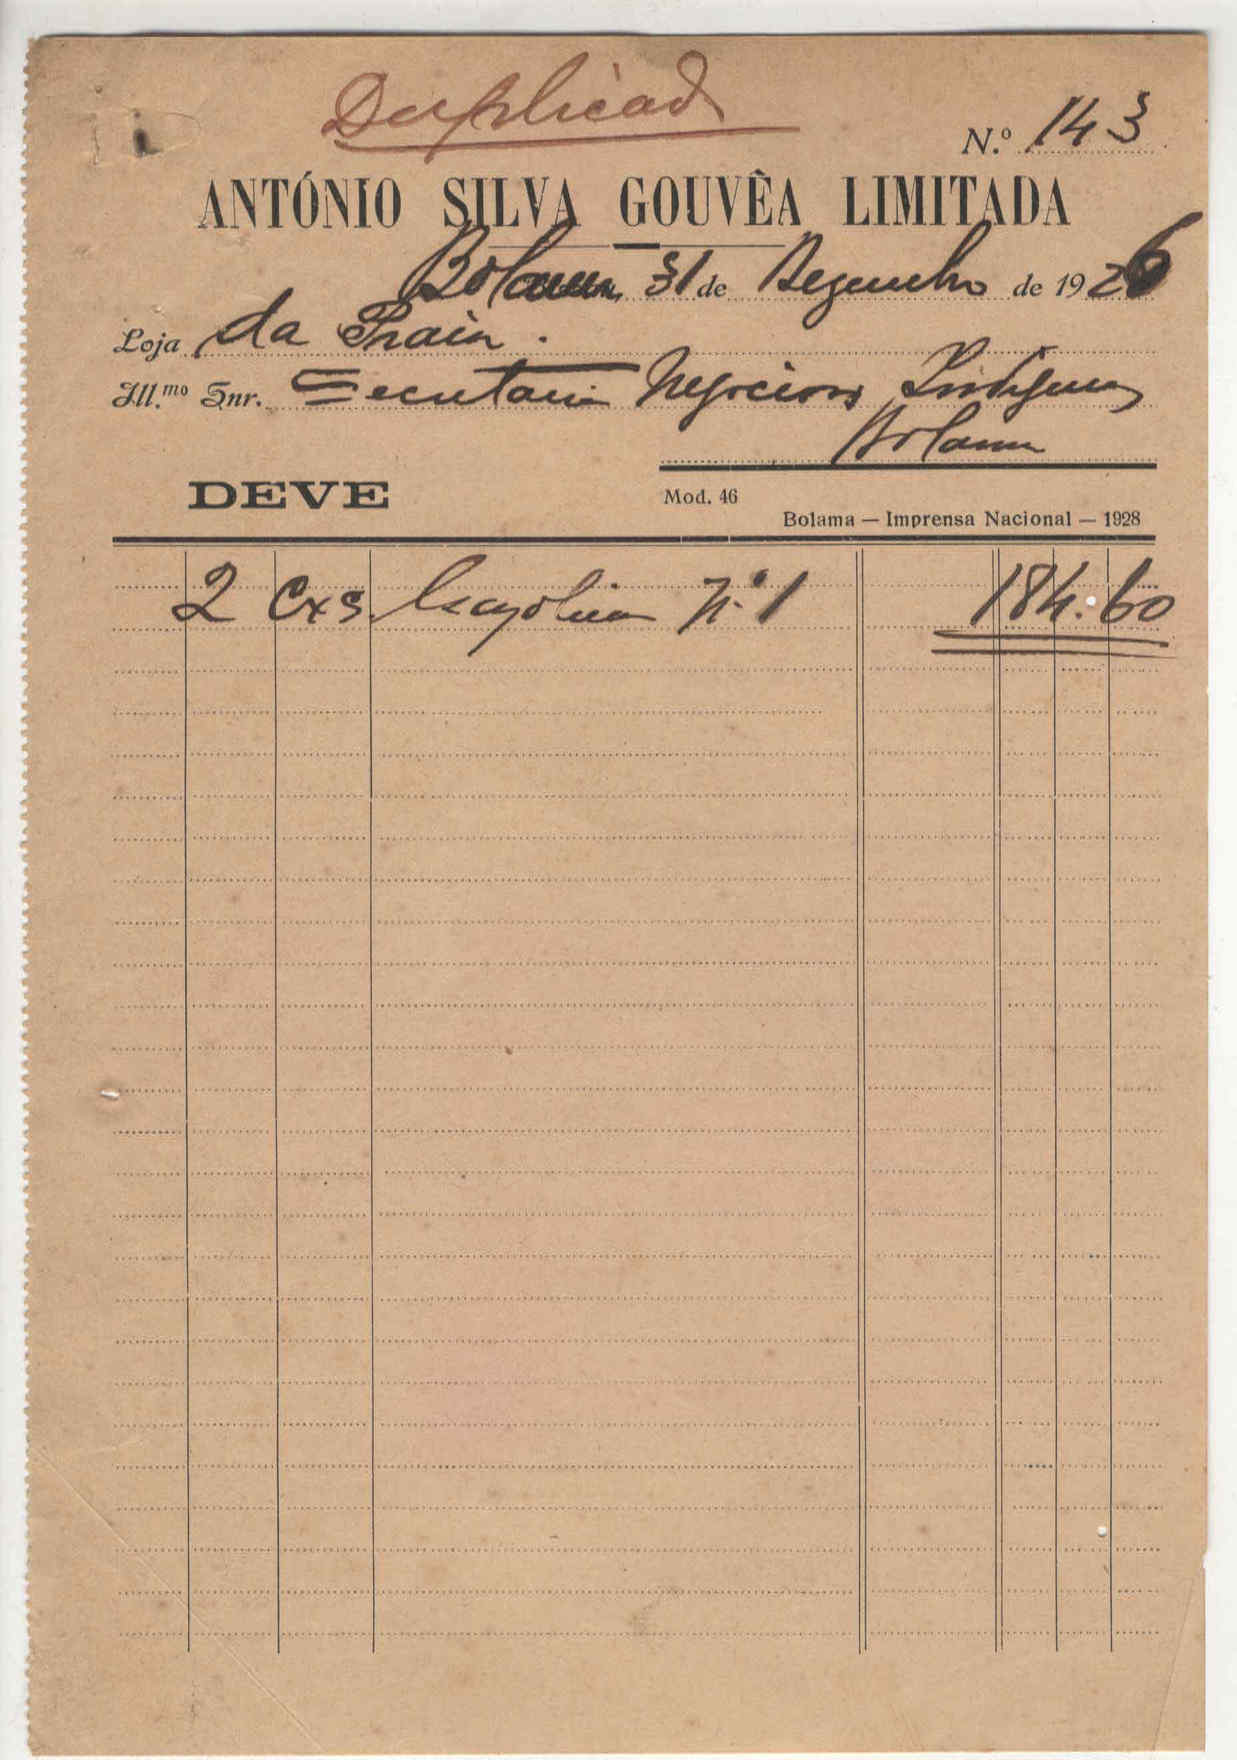 Duplicado
N.º 143
ANTÓNIO SILVA GOUVÊA LIMITADA
Bolama, 31 de Dezembro de 192
Loja da Praia.
Ill.mo Snr. Secretaria Negocios Indigenas
Bolama
DEVE
Mod. 46
Bolama — Imprensa Nacional — 1928
2 Cxs. Gazolina N.º 1 184.60